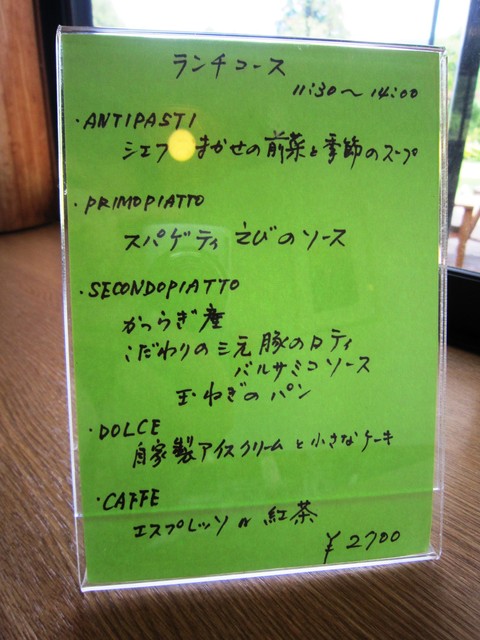 ランチコース
11:30～14:00
・ANTIPASTI
シェフ まかせの前菜と季節のスープ
・PRIMOPIATTO
スパゲティ えびのソース
・SECONDOPIATTO
かつらぎ産
こだわりの三元豚のロティ
バルサミコソース
玉ねぎのパン
・DOLCE
自家製アイスクリームと小さなケーキ
・CAFFE
エスプレッソ or 紅茶
¥2700